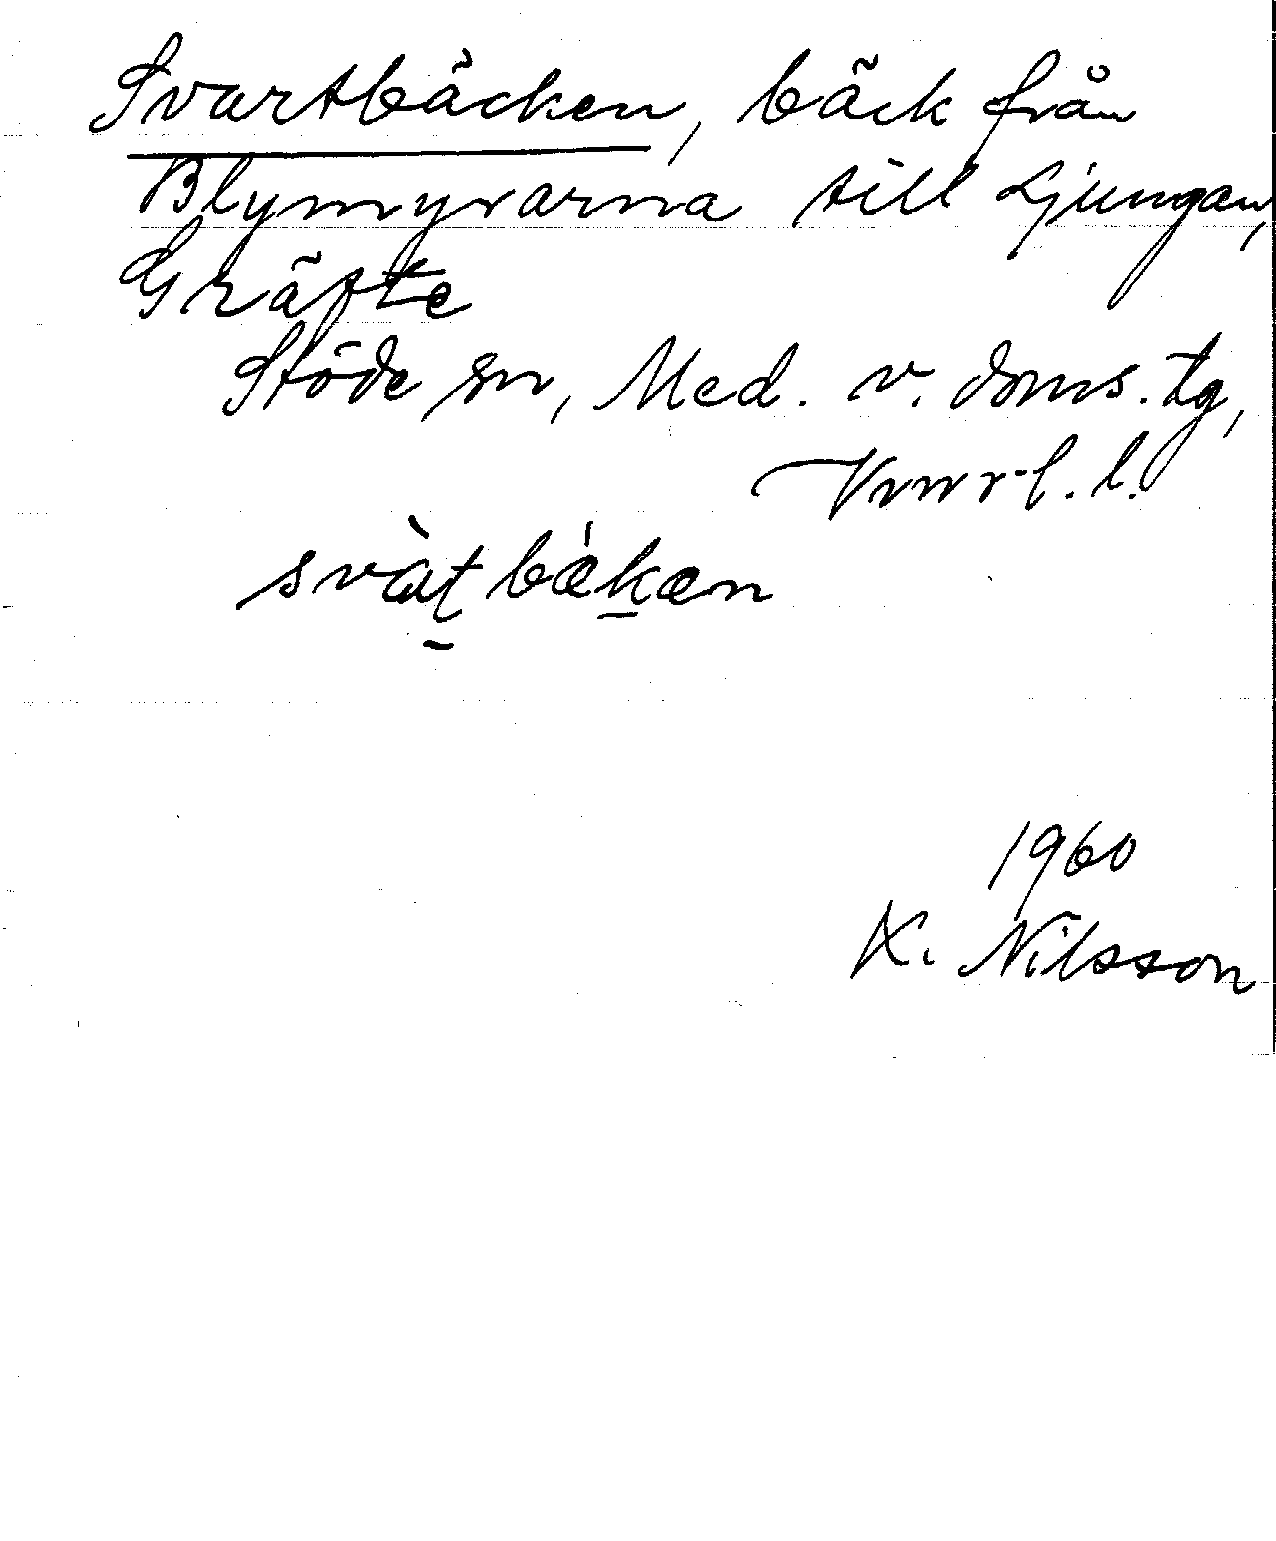 Svartbäcken, bäck från
Blymyrarna till Ljungan,
Gräfte
Stöde sn, Med. v. doms. tg,
l. l.
svàt̠bǽk̠æn
1960
K. Nilsson